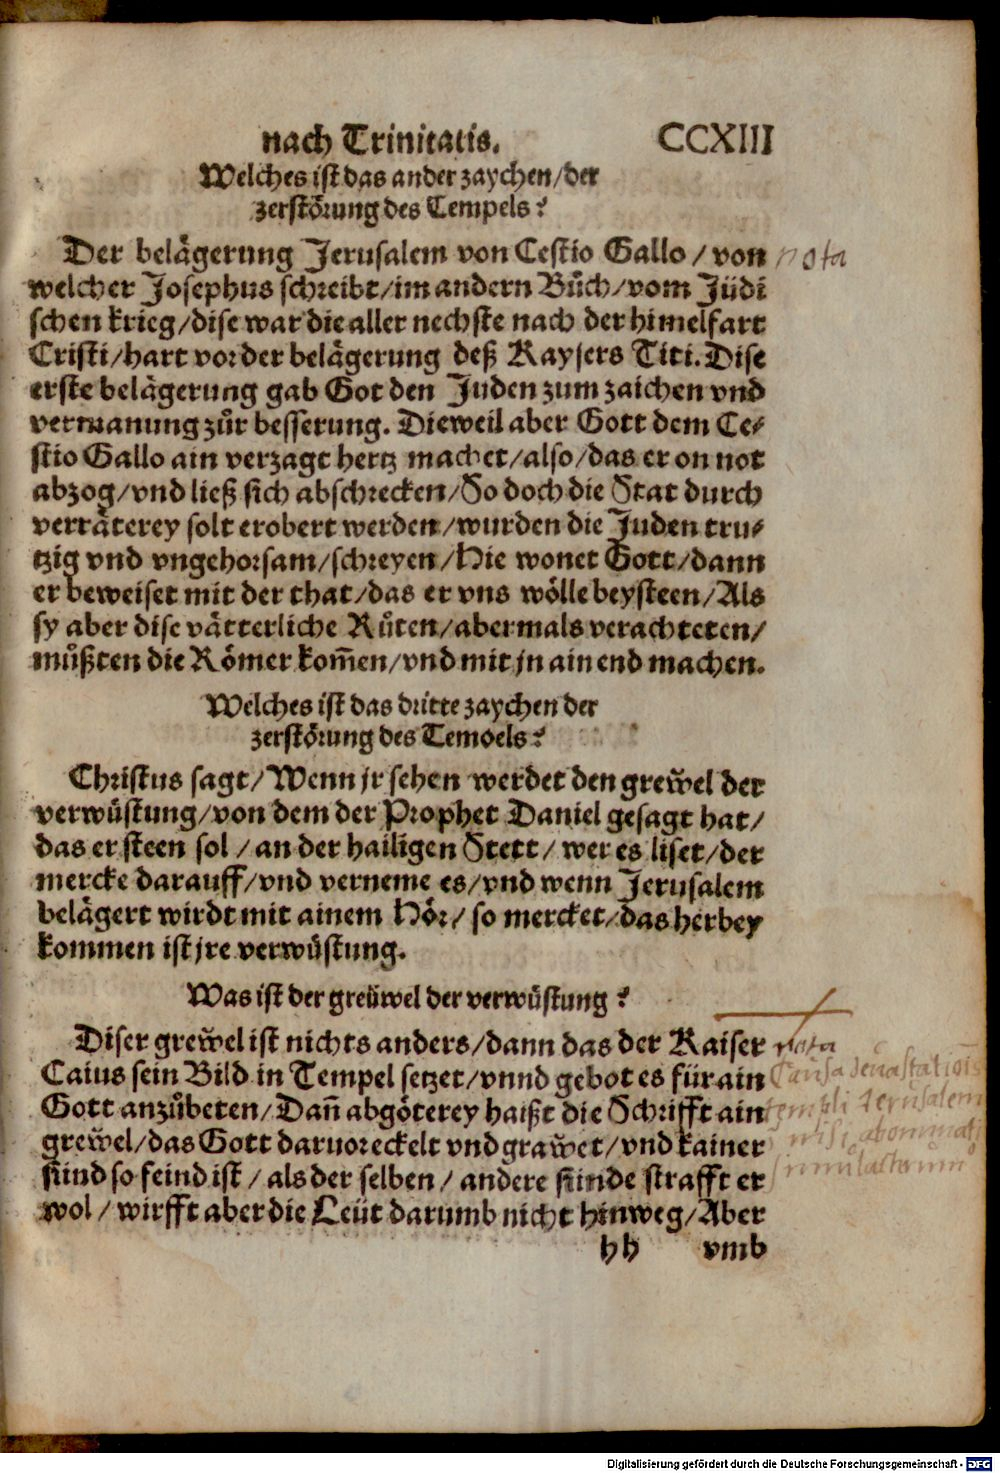 nach Trinitatis. CCXIII
Welches ist das ander zaychen/der
zerstörung des Tempels?
Der belägerung Jerusalem von Cestio Gallo/von nota
welcher Josephus schreibt/im andern Bůch/vom Jüdi
schen krieg/dise war die aller nechste nach der himelfart
Cristi/hart vor der belägerung deß Kaysers Titi. Dise
erste belägerung gab Got den Juden zum zaichen vnd
vermanung zůr besserung. Dieweil aber Gott dem Ce-
stio Gallo ain verzagt hertz machet/also/das er on not
abzog/vnd ließ sich abschrecken/So doch die Stat durch
verräterey solt erobert werden/wurden die Juden tru-
tzig vnd vngehorsam/schreyen/Hie wonet Gott/dann
er beweiset mit der that/das er vns wölle beysteen/Als
sy aber dise vätterliche Růten/abermals verachteten/
můßten die Römer kom̄en/vnd mit jn ain end machen.
Welches ist das dritte zaychen der
zerstörung des Temoels?
Christus sagt/Wenn jr sehen werdet den grew̆el der
verwüstung/von dem der Prophet Daniel gesagt hat/
das er steen sol/an der hailigen Stett/wer es liset/der
mercke darauff/vnd verneme es/vnd wenn Jerusalem
belägert wirdt mit ainem Hör/so mercket/das herbey
kommen ist jre verwüstung.
Was ist der greüwel der verwüstung?
Diser grew̆el ist nichts anders/dann das der Kaiser nota
Caius sein Bild in Tempel setzet/vnnd gebot es für ain Causa deuastationis
Gott anzůbeten/Dan̄ abgöterey haißt die Schrifft ain templi Jerusalem
grew̆el/das Gott daruor eckelt vnd graw̆et/vnd kainer
sünd so feind ist/als der selben/andere sünde strafft er
wol/wirfft aber die Leüt darumb nicht hinweg/Aber
hh vmb
Digitalisierung gefördert durch die Deutsche Forschungsgemeinschaft - DFG